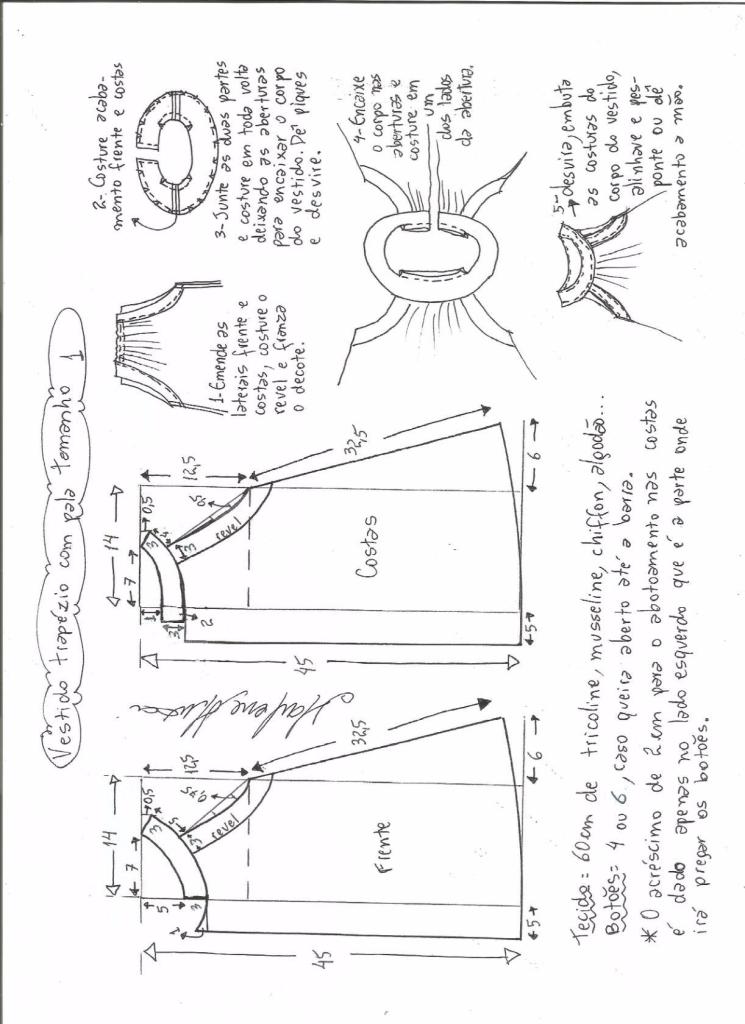 Vestido trapézio com pala tamanho 1
14
7
5
3
3
0,5
5
3
revel
0,5
12,5
32,5
1
Frente
45
5
6
Marlene Mukai
14
7
1
3
2
3
0,5
4
3
revel
0,5
12,5
32,5
Costas
45
5
6
1-Emende as
laterais frente e
costas, costure o
revel e franza
o decote.
2-Costure acaba-
mento frente e costas
3-Junte as duas partes
e costure em toda volta
deixando as aberturas
para encaixar o corpo
do vestido. Dê piques
e desvire.
4-Encaixe
o corpo nas
aberturas e
costure em
um
dos lados
da abertura.
5-desvira, embuta
as costuras do
corpo do vestido,
alinhave e pes-
ponte ou dê
acabamento a mão.
Tecido = 60cm de tricoline, musseline, chiffon, algodão...
Botões = 4 ou 6, caso queira aberto até a barra.
* O acréscimo de 2 cm para o abotoamento nas costas
é dado apenas no lado esquerdo que é a parte onde
irá pregar os botões.